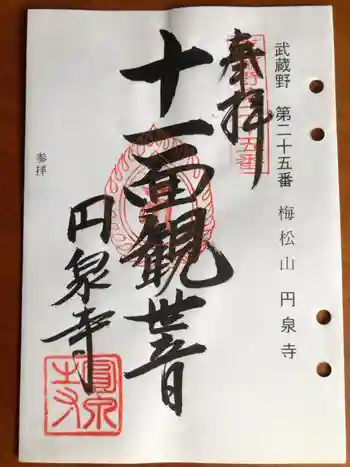 武蔵野 第二十五番 梅松山 円泉寺
奉拝
十一面観世音
円泉寺
参拝